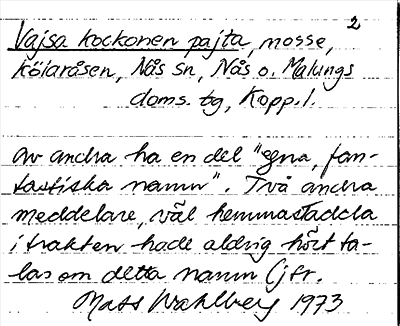 2
Vajsa Kockonen pajta, mosse,
Kölaråsen, Nås sn, Nås o. Malungs
doms. tg, Kopp. l.
av andra ha en del "egna, fan-
tastiska namn". Två andra
meddelare, väl hemmastadda
i trakten hade aldrig hört ta-
las om detta namn (jfr.
Mats Wahlberg 1973